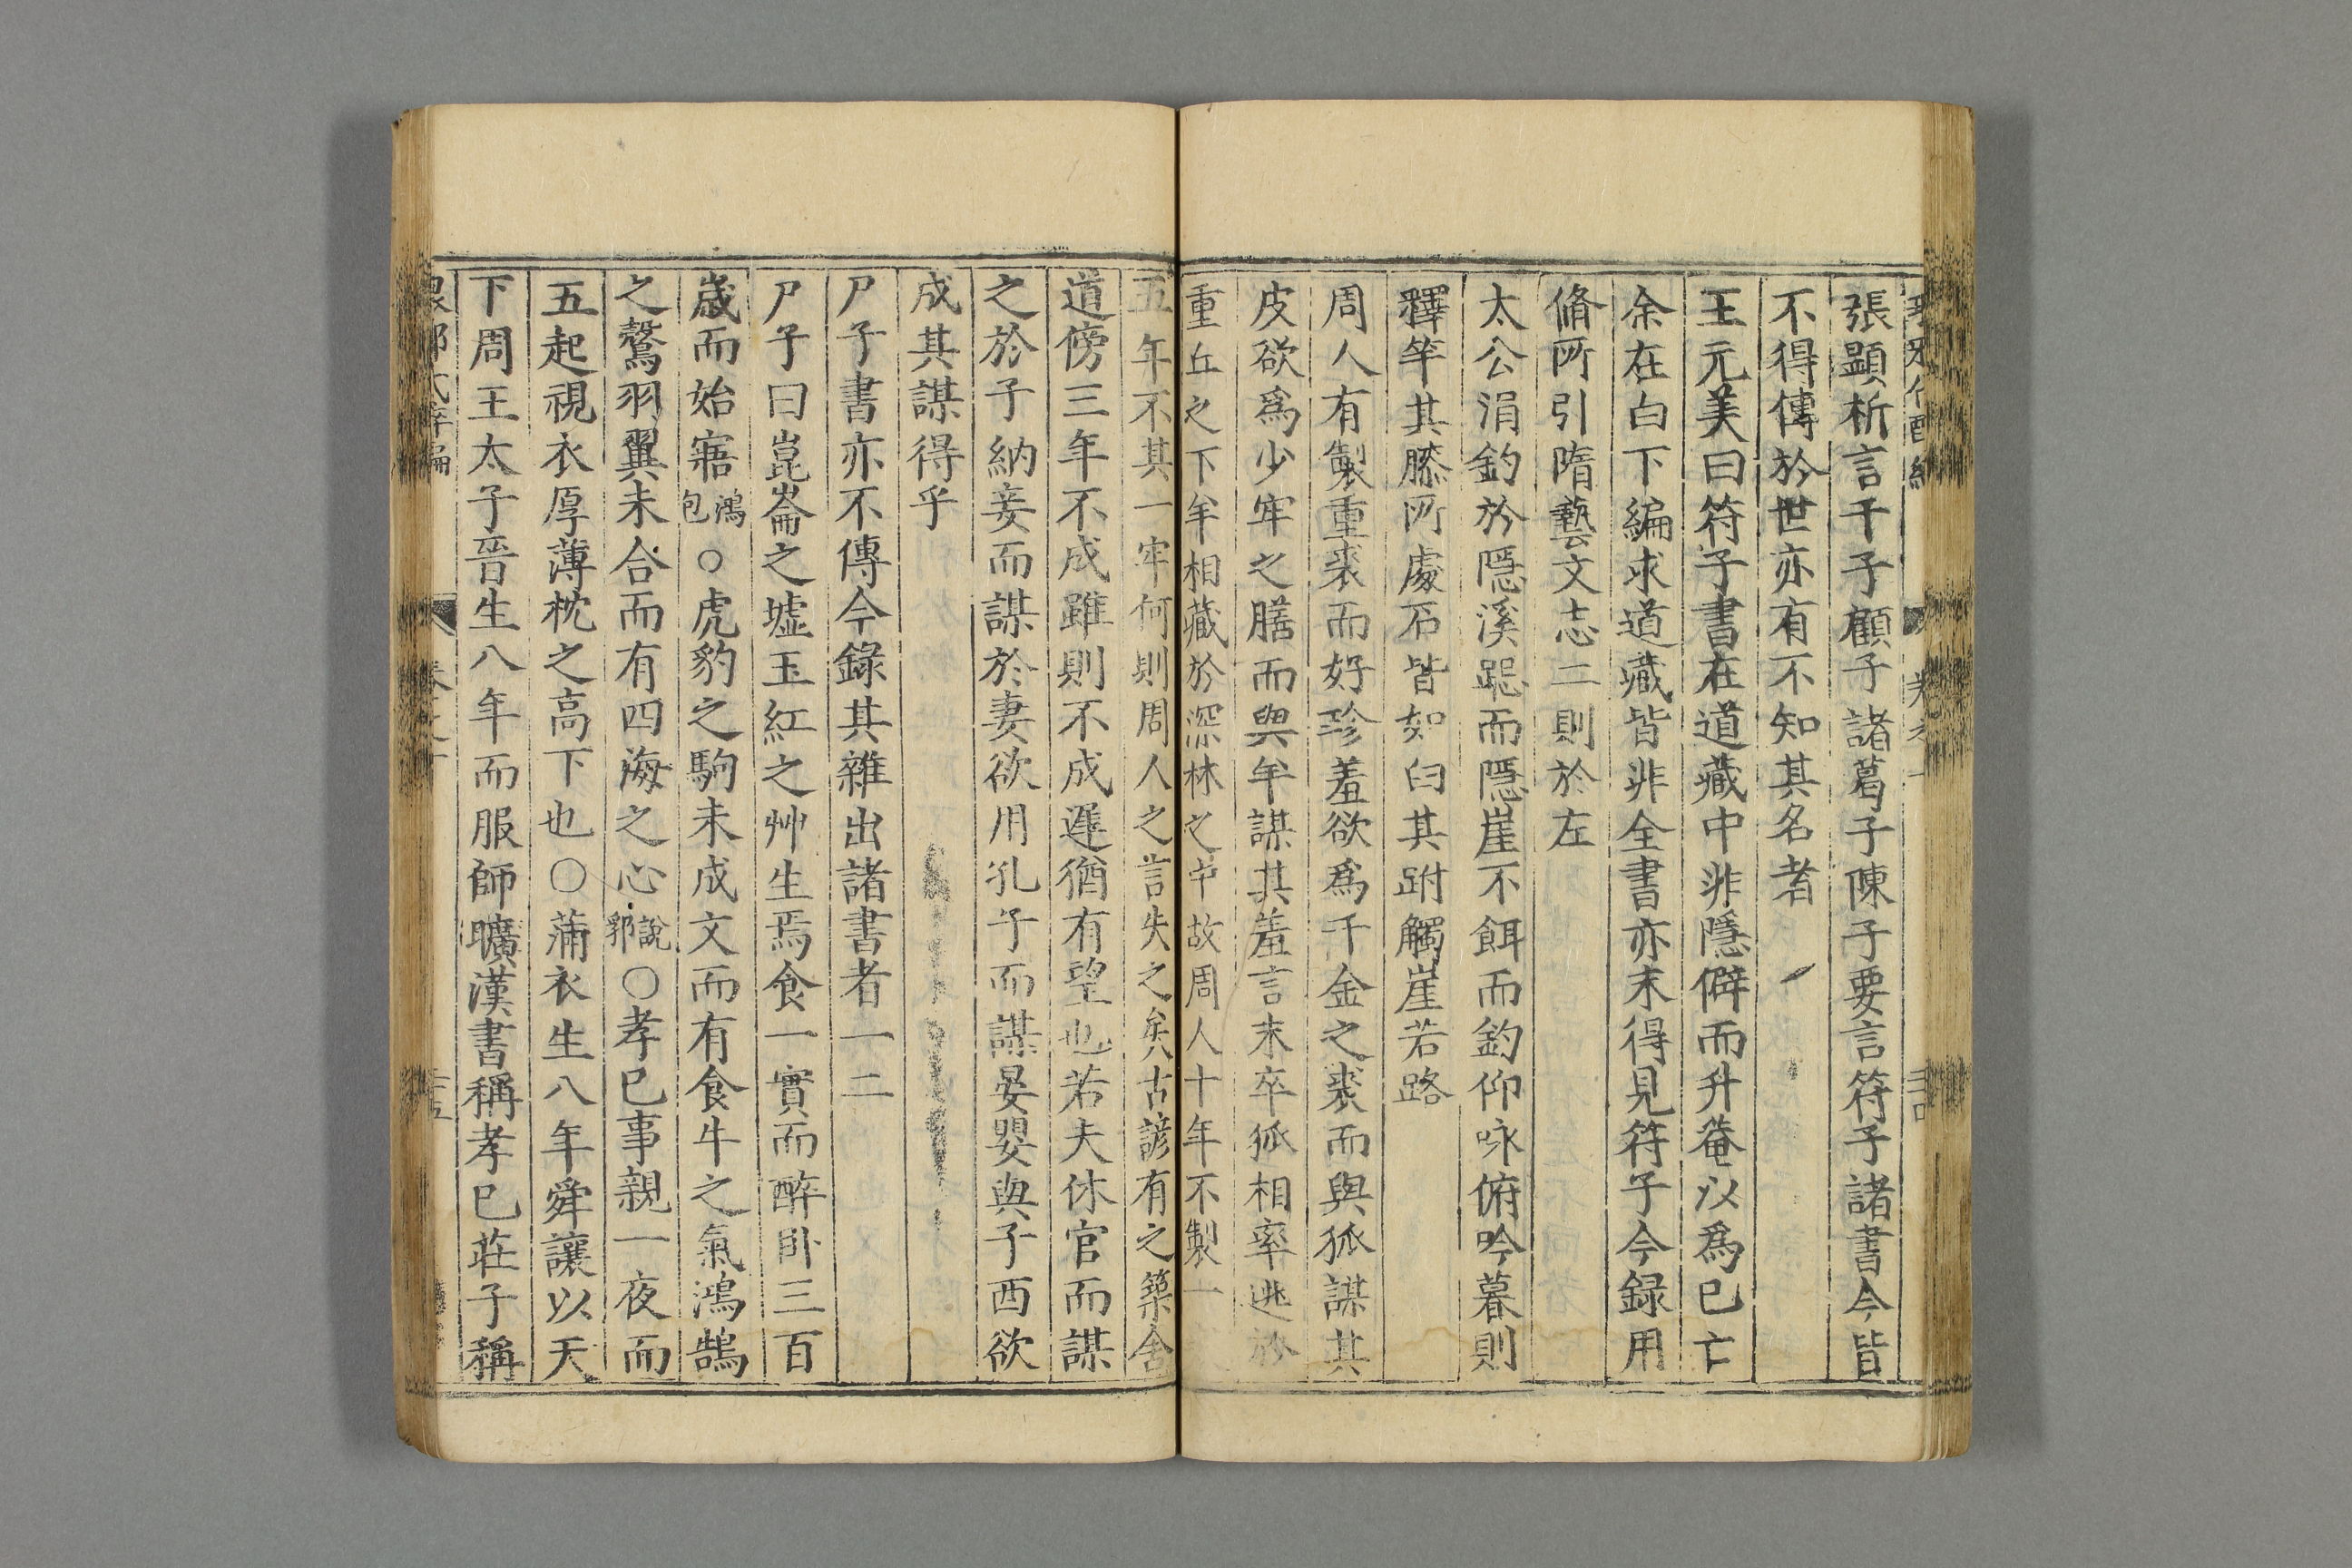 張顯析言干子顧子諸葛子陳子要言符子諸書今皆
不得傳於世亦有不知其名者
王元美曰符子書在道藏中非隱僻而升菴以為已亡
余在白下編求道藏皆非全書亦未得見符子今録用
脩所引隋藝文志二則於左
太公涓釣於隱溪跽而隱崖不餌而釣仰咏俯吟暮則
釋竿其膝所處石皆如臼其跗觸崖若路
周人有製重裘而好珍羞欲為千金之裘而與狐謀其
皮欲為少牢之膳而與羊謀其羞言未卒狐相率逃於
重丘之下羊相藏於深林之中故周人十年不製一
五年不其一牢何則周人之言失之矣古諺有之築舍
道傍三年不成雖則不成遲猶有望也若夫休官而謀
之於子納妾而謀於妻欲用孔子而謀晏嬰與子西欲
成其謀得乎
尸子書亦不傳今錄其雜出諸書者一二
尸子曰崑崙之墟玉紅之艸生焉食一實而醉卧三百
歲而始寤鴻包○虎豹之駒未成文而有食牛之氣鴻鵠
之鷇羽翼未合而有四海之心說郛○孝已事親一夜而
五起視衣厚薄枕之高下也○蒲衣生八年舜讓以天
下周王太子晉生八年而服師曠漢書稱孝已莊子稱